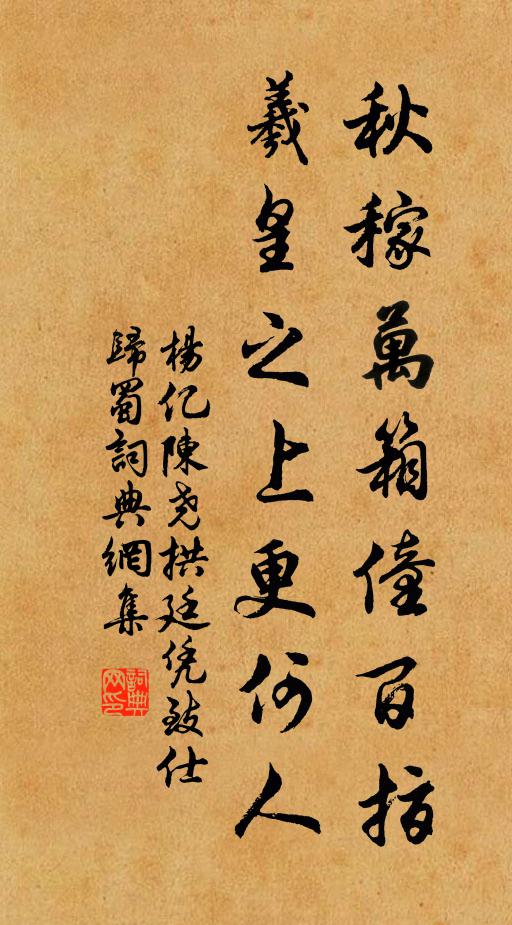 秋稼萬箱僮百指
羲皇之上更何人
楊亿陳尧拱廷凭致仕
歸蜀詞典網集
詞典网印